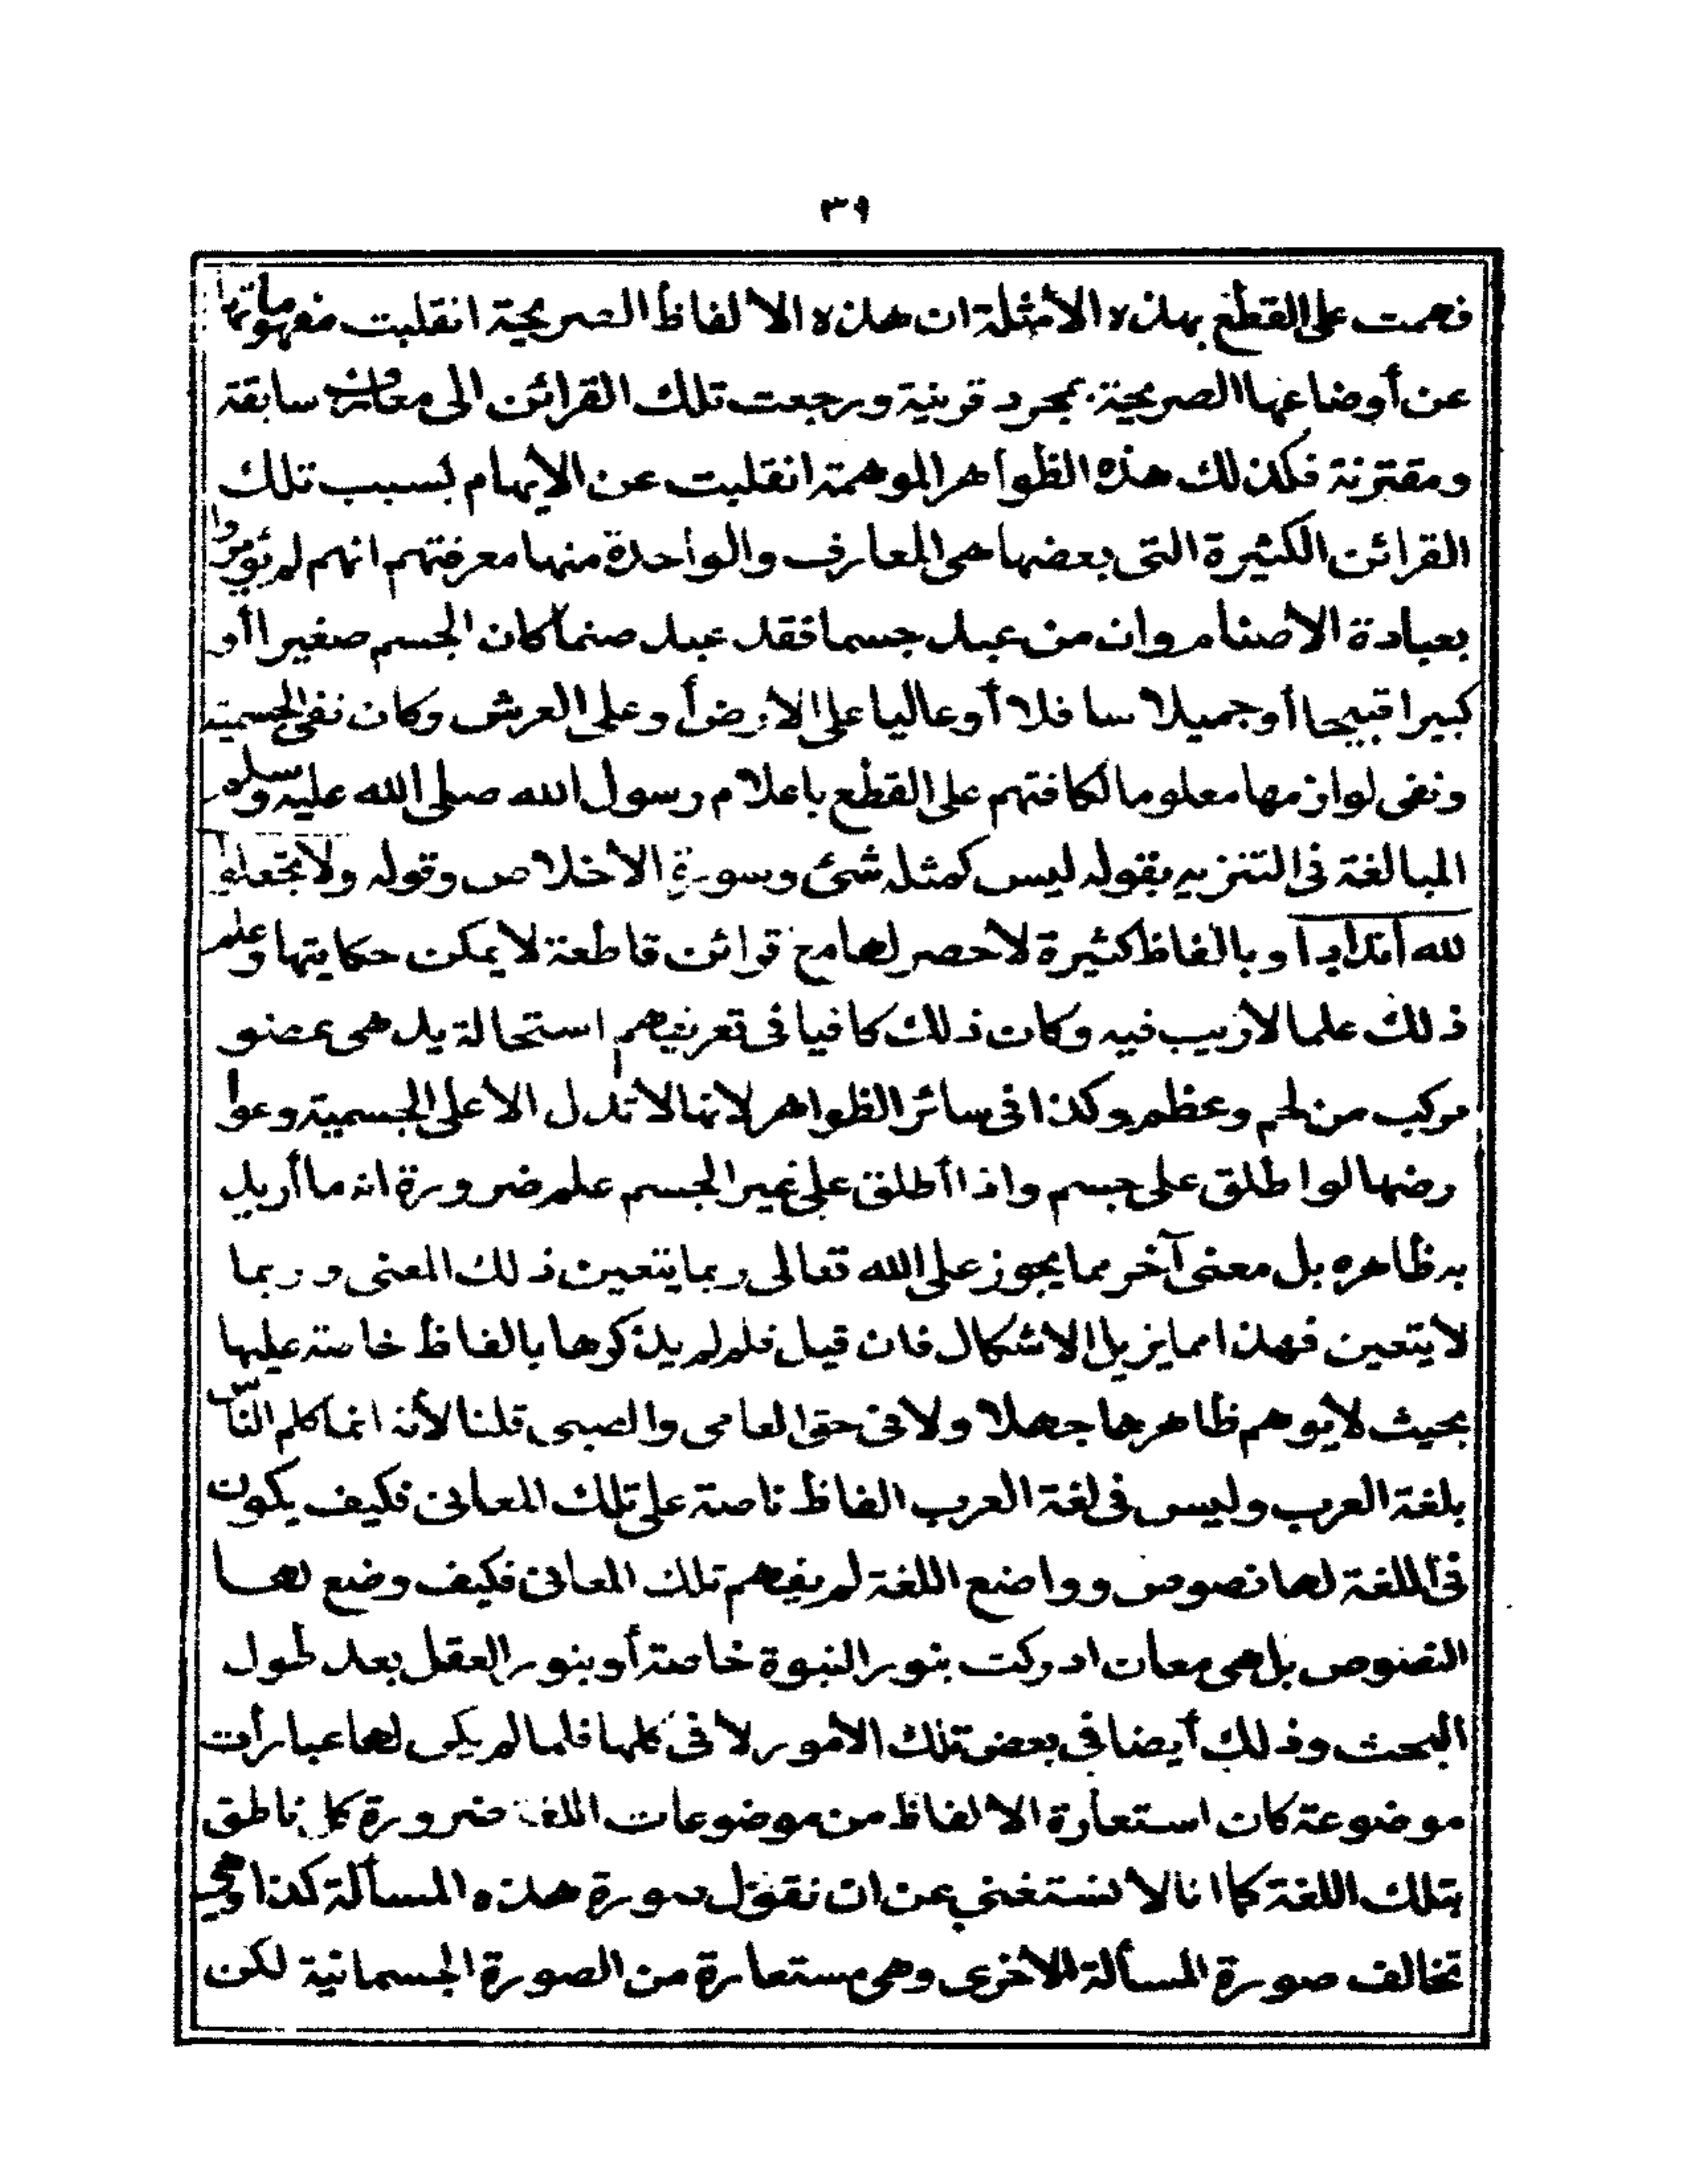 ٣٩
فهمت على القطع بهذه الأمثلة ان هذه الالفاظ الصريحة انقلبت مفهوماتها
عن أوضاعها الصريحة بمجرد قرينة ورجعت تلك القرائن الى معارف سابقة
ومقترنة فكذلك هذه الظواهر الموهمة انقلبت عن الايهام بسبب تلك
القرائن الكثيرة التى بعضها هى المعارف والواحدة منها معرفتهم انهم لم يؤمروا
بعبادة الاصنام وان من عبد جسما فقد عبد صنما كان الجسم صغيرا أو
كبيرا قبيحا أو جميلا سافلا أو عاليا على الارض أو على العرش وكان نفى الجسمية
ونفى لوازمها معلوما لكافتهم على القطع باعلام رسول الله صلى الله عليه وسلم
المبالغة فى التنزيه بقوله ليس كمثله شئ وسورة الأخلاص وقوله ولا تجعلوا
لله أندادا وبالفاظ كثيرة لا حصر لها مع قرائن قاطعة لا يمكن حكايتها وعلم
ذلك علما لا ريب فيه وكان ذلك كافيا فى تعريفهم استحالة يد هى عضو
مركب من لحم وعظم وكذا فى سائر الظواهر لانها لا تدل الا على الجسمية وعوا
رضها لو اطلق على جسم واذا أطلق على غير الجسم علم ضرورة انه ما أريد
به ظاهره بل معنى آخر مما يجوز على الله تعالى ربما يتعين ذلك المعنى وربما
لا يتعين فهذا مما يزيل الاشكال فان قيل فلم لم يذكرها بالفاظ خاصة عليها
بحيث لا يوهم ظاهرها جهلا ولا فى حق العامى والصبى قلنا لأنه انما كلم الناس
بلغة العرب وليس فى لغة العرب الفاظ ناصة على تلك المعانى فكيف يكون
فى اللغة لها نصوص وواضع اللغة لم يفهم تلك المعانى فكيف وضع لها
النصوص بل هى معان ادركت بنور النبوة خاصة أو بنور العقل بعد طول
البحث وذلك أيضا فى بعض تلك الامور لا فى كلها فلما لم يكن لها عبارات
موضوعة كان استعارة الالفاظ من موضوعات اللغة ضرورة كل ناطق
بتلك اللغة كما انا لا نستغنى عن ان نقول صورة هذه المسألة كذا وهى
تخالف صورة المسألة الاخرى وهى مستعارة من الصورة الجسمانية لكن